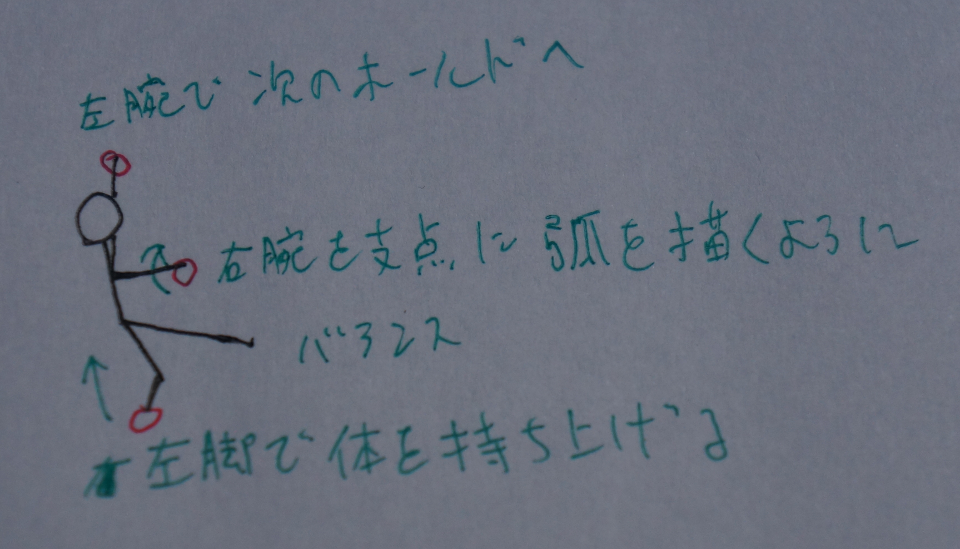 左腕で次のホールドへ
右腕を支点に弧を描くように
バランス
左脚で体を持ち上げる